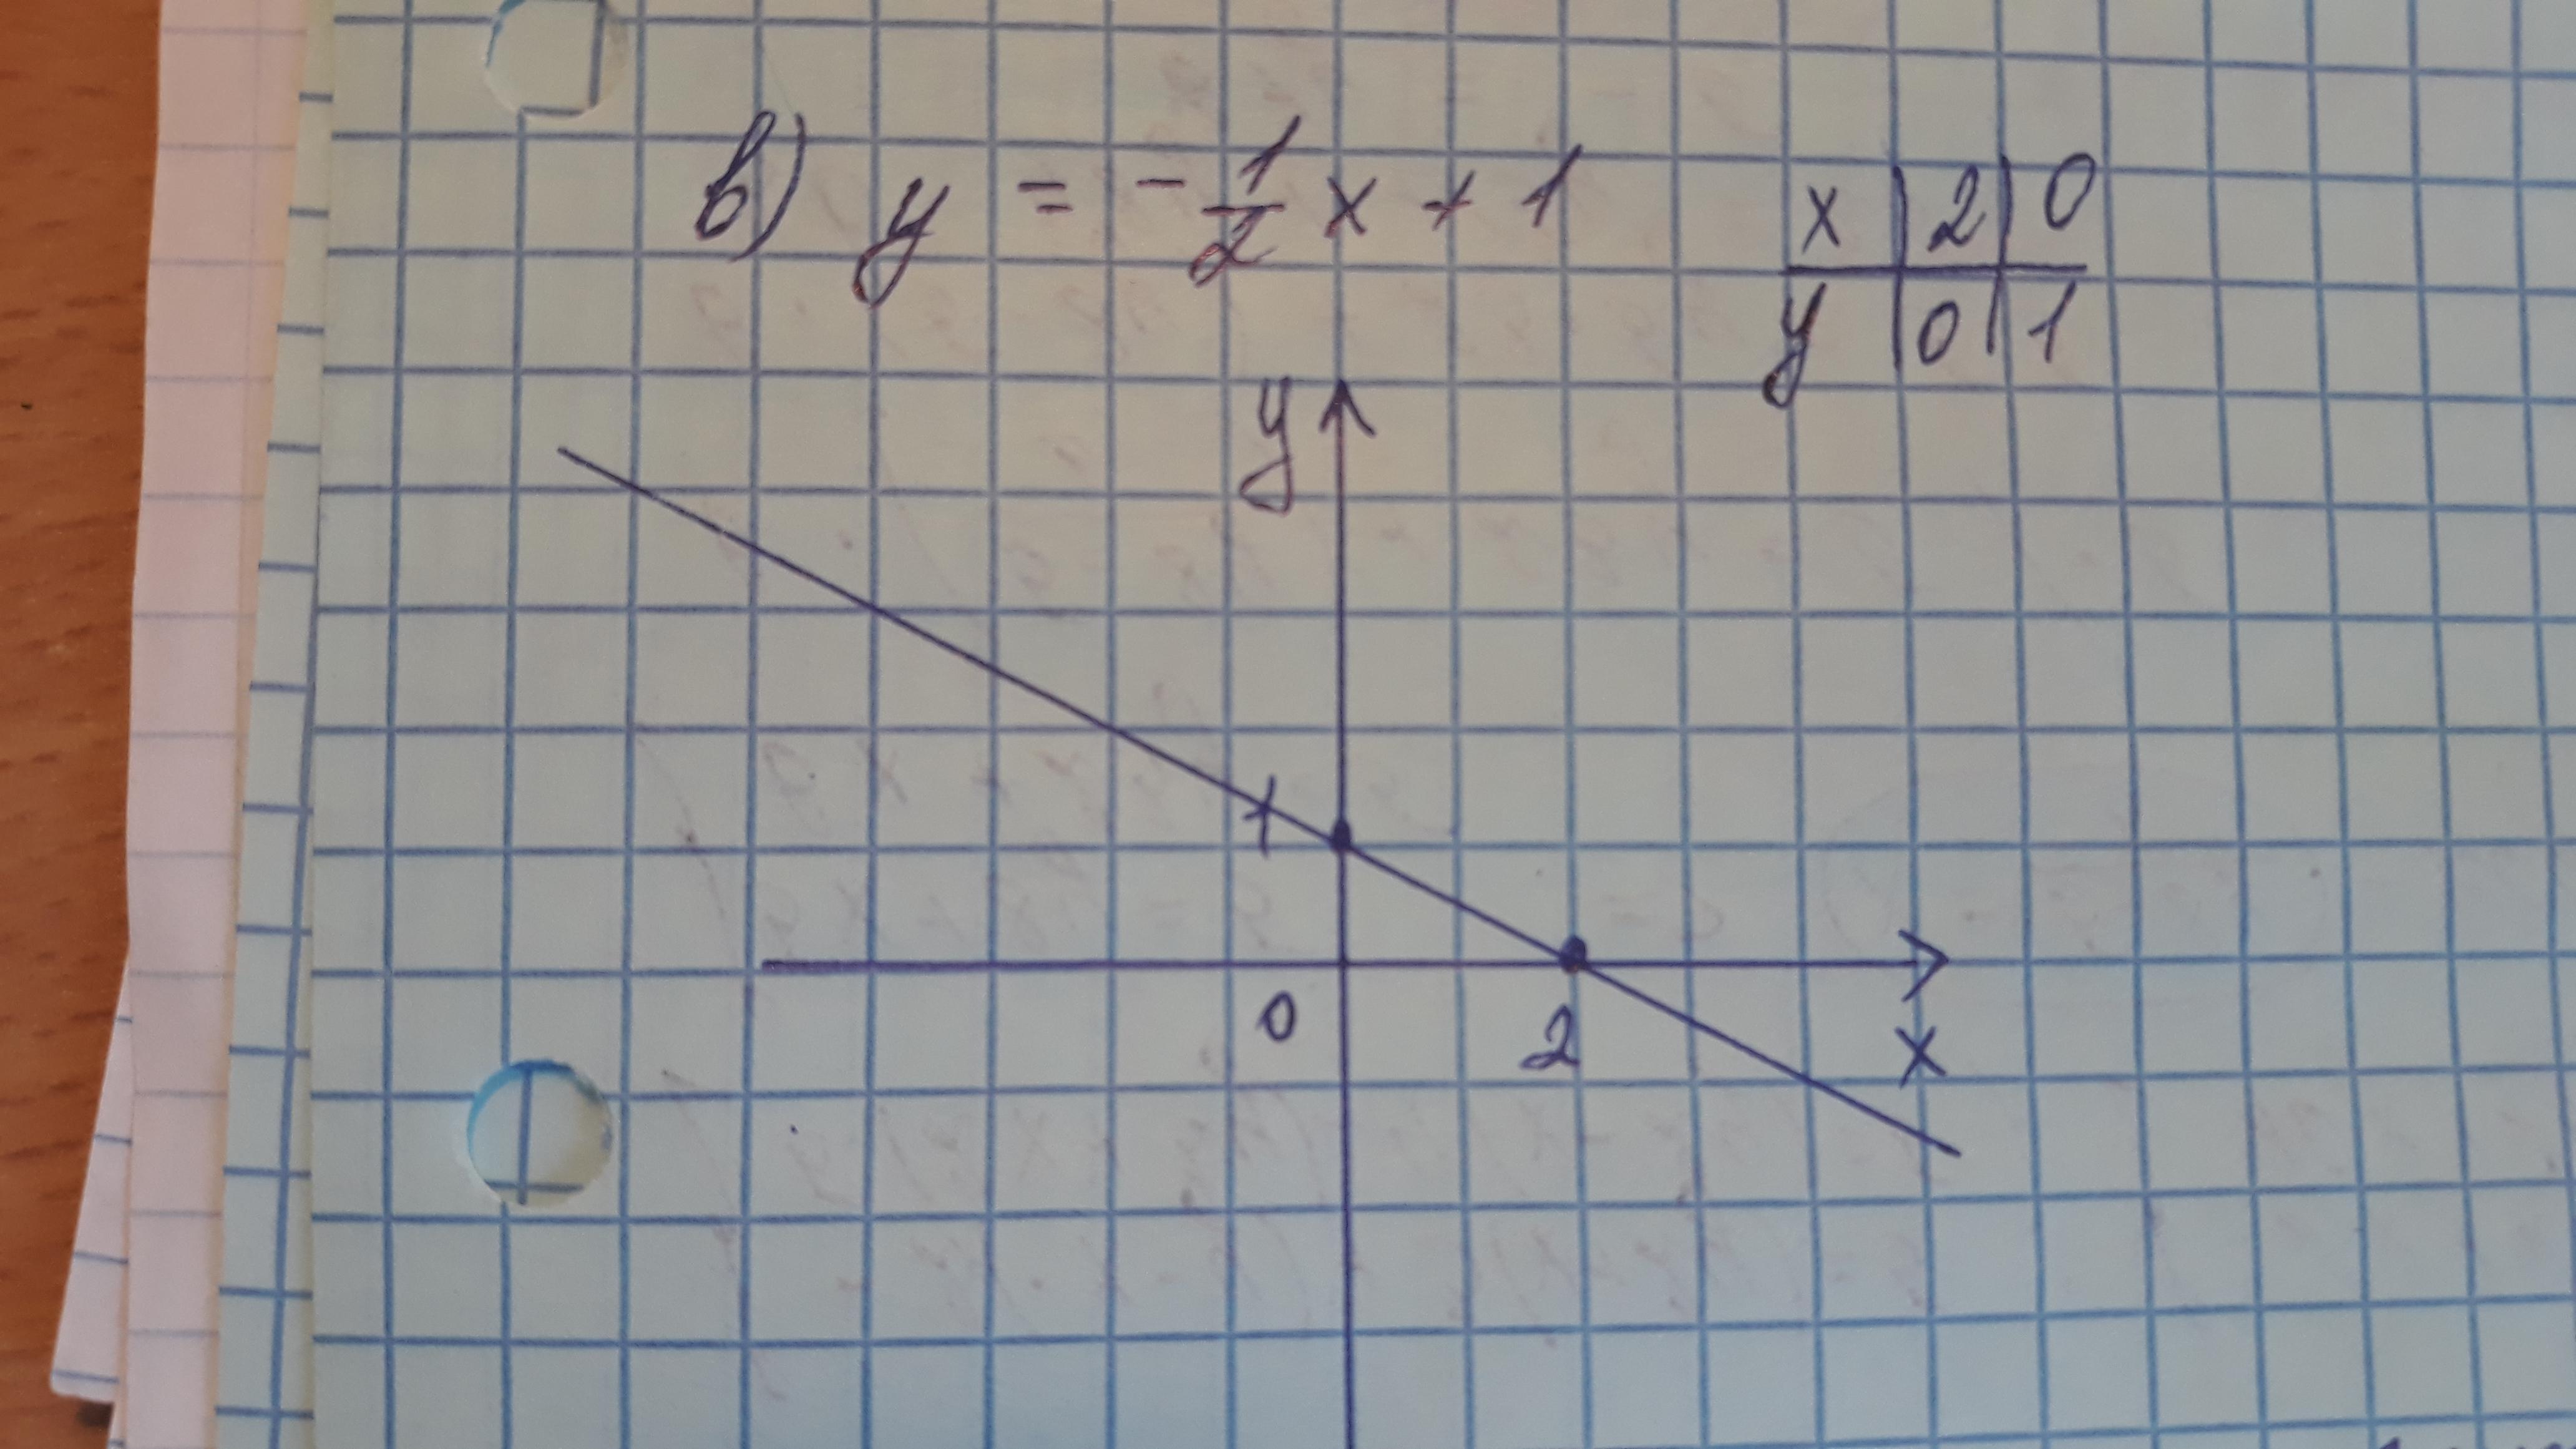 в) y = -1/2 x + 1
x | 2 | 0
y | 0 | 1
y
1
0
2
x